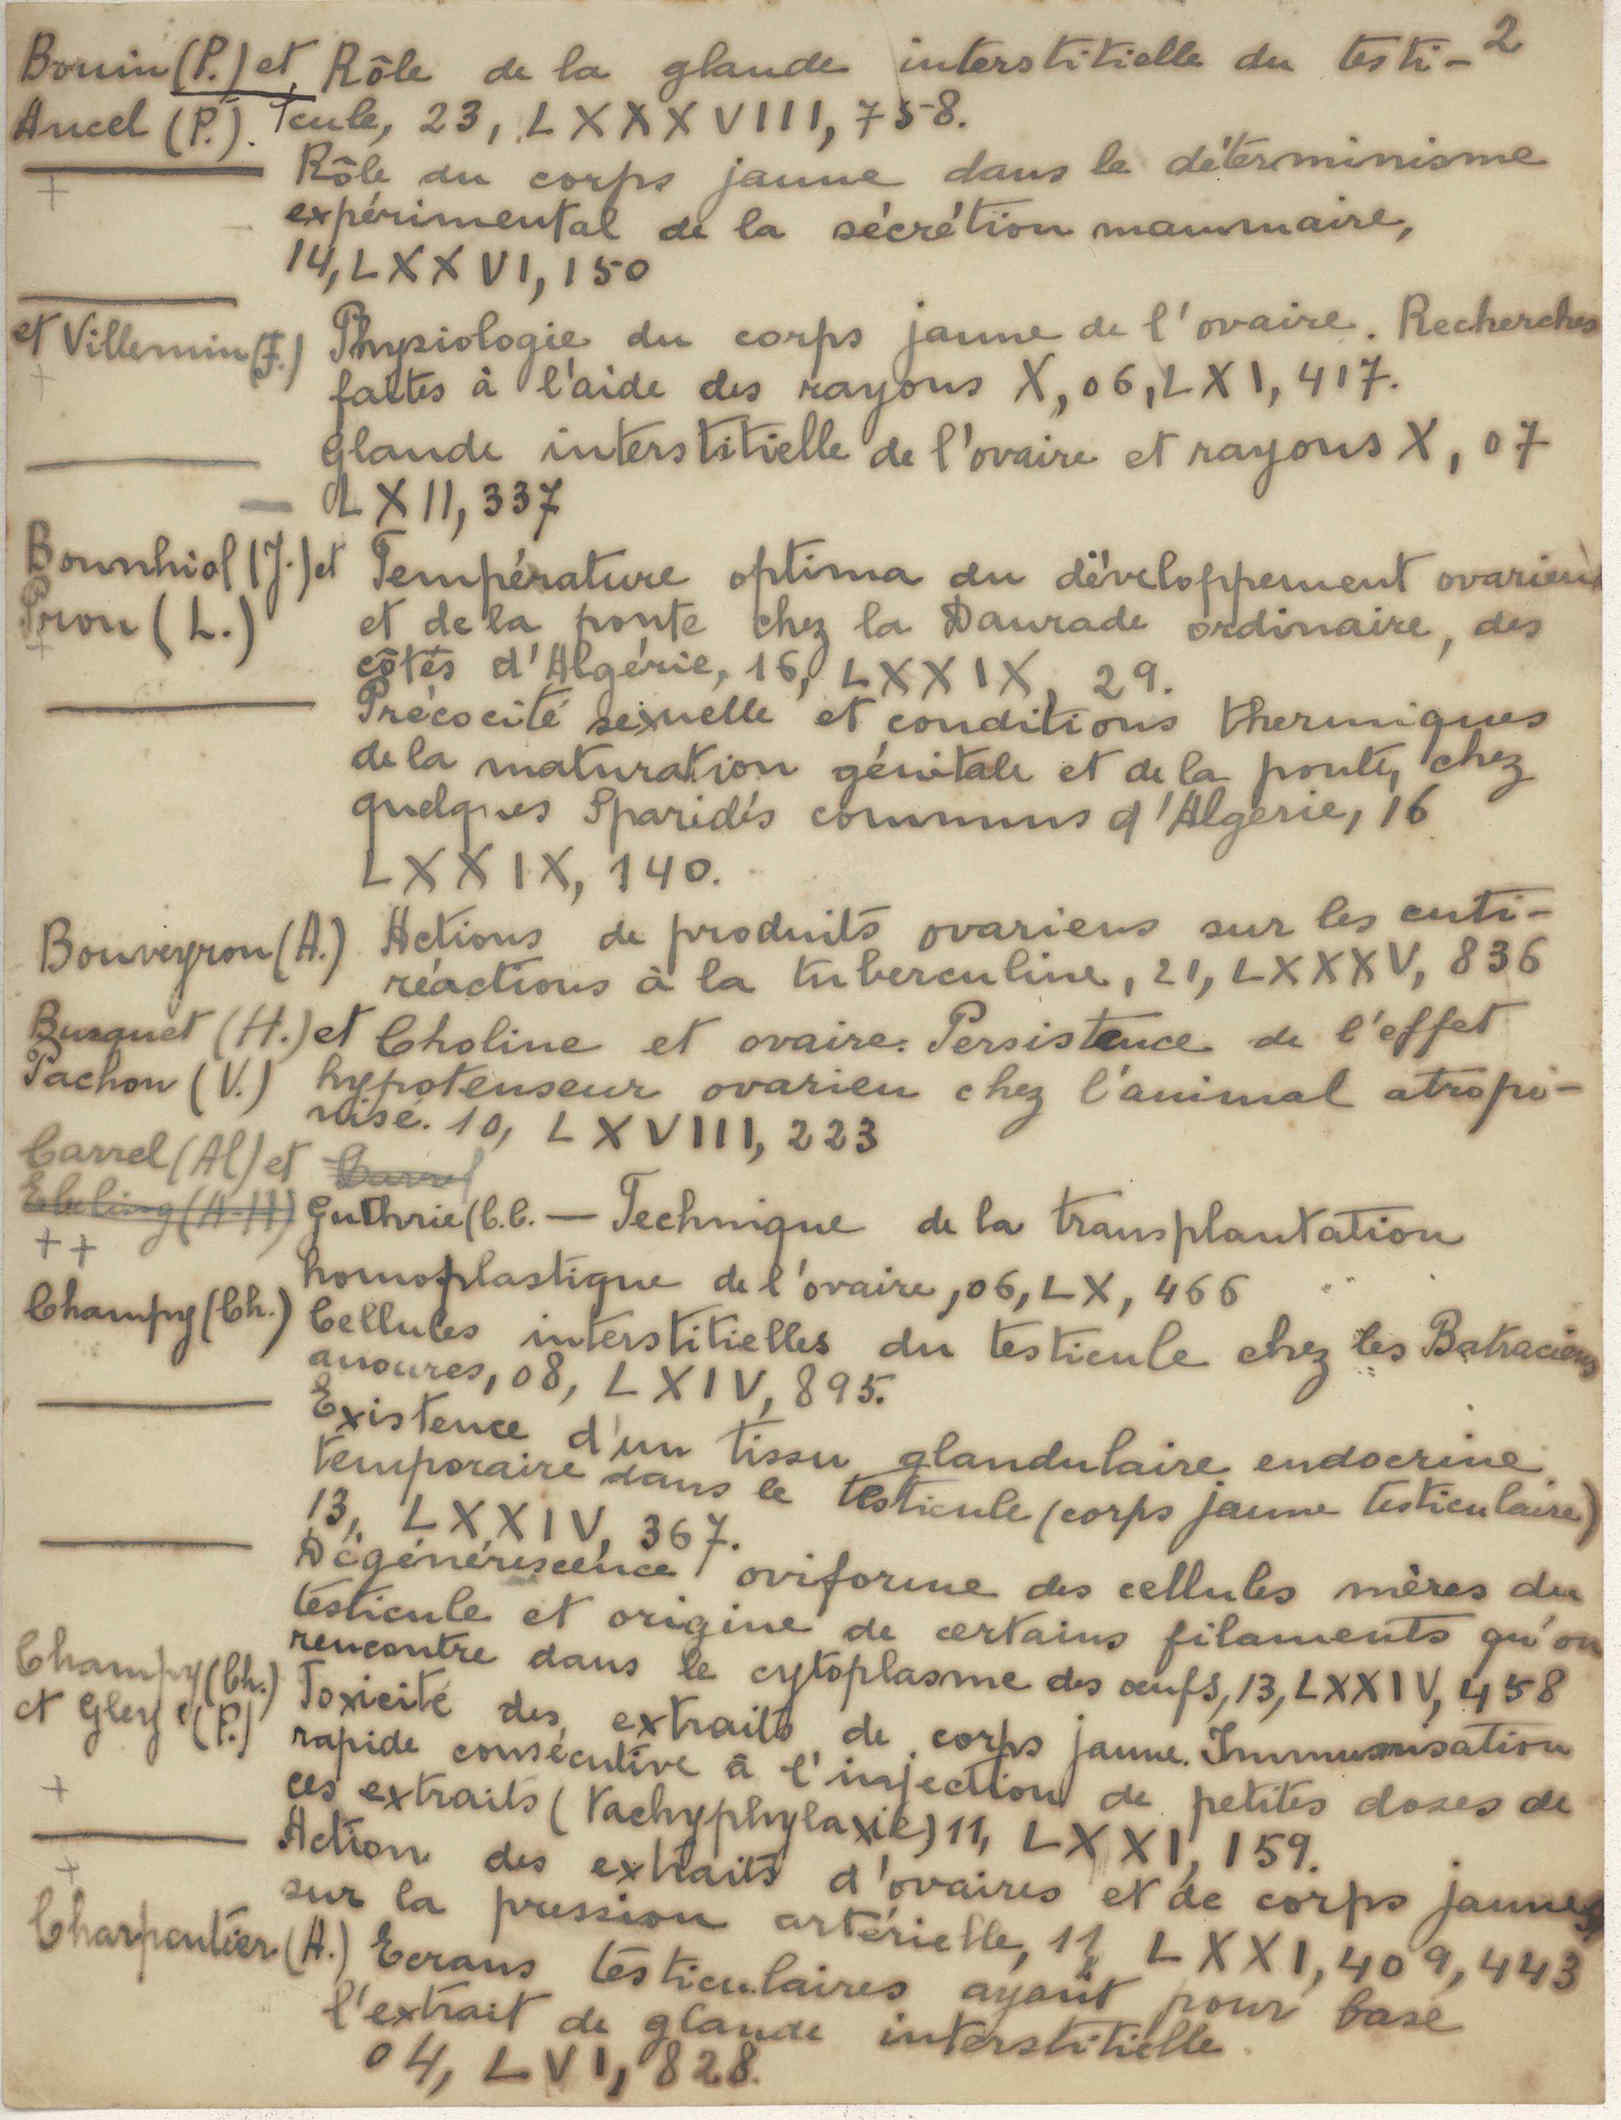 2
Bouin (P.) et Rôle de la glande interstitielle du testi-
Ancel (P.). cule, 23, LXXXVIII, 758.
+ Rôle du corps jaune dans le déterminisme
expérimental de la sécrétion mammaire,
14, LXXVI, 150
et Villemin (F.) Physiologie du corps jaune de l'ovaire. Recherches
+ faites à l'aide des rayons X, 06, LXI, 417.
Glande interstitielle de l'ovaire et rayons X, 07
LXII, 337
Bounhiol (J.) et Température optima du développement ovarien
Pron (L.) et de la ponte chez la Daurade ordinaire, des
+ côtés d'Algérie, 16, LXXIX, 29.
Précocité sexuelle et conditions thermiques
de la maturation génitale et de la ponte, chez
quelques Sparidés communs d'Algérie, 16
LXXIX, 140.
Bouveyron (A.) Actions de produits ovariens sur les cuti-
réactions à la tuberculine, 21, LXXXV, 836
Busquet (H.) et Choline et ovaire. Persistence de l'effet
Pachon (V.) hypotenseur ovarien chez l'animal atropi-
nisé. 10, LXVIII, 223
Carrel (Al) et Carrel
Ebeling (A-H) Guthrie (C.C. — Technique de la transplantation
++ homoplastique de l'ovaire, 06, LX, 466
Champy (Ch.) Cellules interstitielles du testicule chez les Batraciens
anoures, 08, LXIV, 895.
Existence d'un tissu glandulaire endocrine
temporaire dans le testicule (corps jaune testiculaire)
13, LXXIV, 367.
Dégénérescence oviforme des cellules mères du
testicule et origine de certains filaments qu'on
rencontre dans le cytoplasme des œufs, 13, LXXIV, 458
Champy (Ch.) Toxicité des extraits de corps jaune. Immunisation
et Gley (P.) rapide consécutive à l'injection de petites doses de
+ ces extraits (tachyphylaxie) 11, LXXI, 159.
Action des extraits d'ovaires et de corps jaunes
+ sur la pression artérielle, 11, LXXI, 409, 443
Charpentier (A.) Ecrans testiculaires ayant pour base
l'extrait de glande interstitielle.
04, LVI, 828.